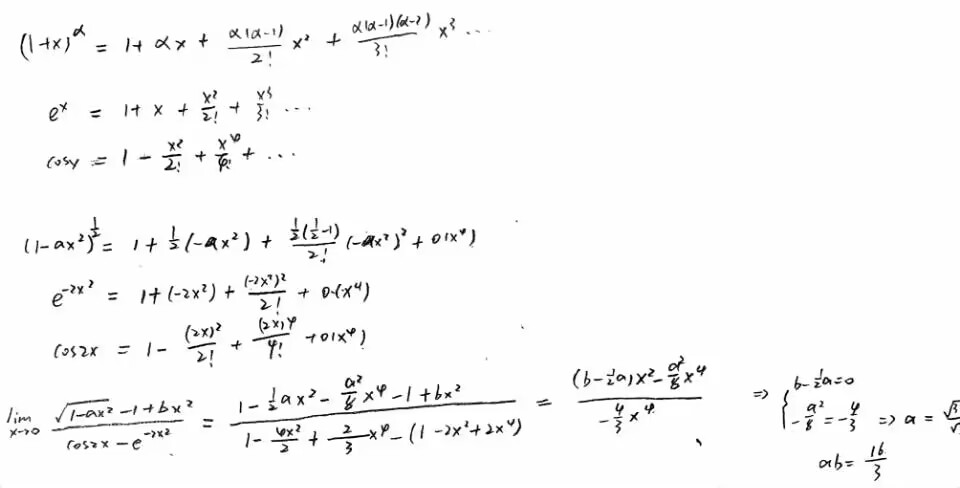 (1+x)^α = 1 + αx + α(α-1)/2! x² + α(α-1)(α-2)/3! x³ ...
e^x = 1 + x + x²/2! + x³/3! ...
cosx = 1 - x²/2! + x⁴/4! + ...
(1-ax²)^½ = 1 + ½(-ax²) + ½(½-1)/2! (-ax²)² + o(x⁴)
e^(-2x²) = 1 + (-2x²) + (-2x²)²/2! + o(x⁴)
cos2x = 1 - (2x)²/2! + (2x)⁴/4! + o(x⁴)
lim x→0 (√(1-ax²) - 1 + bx²)/(cos2x - e^(-2x²)) = (1 - ½ax² - a²/8 x⁴ - 1 + bx²)/(1 - 4x²/2 + 2/3 x⁴ - (1 - 2x² + 2x⁴)) = ((b - ½a)x² - a²/8 x⁴)/(-4/3 x⁴) ⇒ { b - ½a = 0
-a²/8 = -4/3 ⇒ a =
ab = 16/3